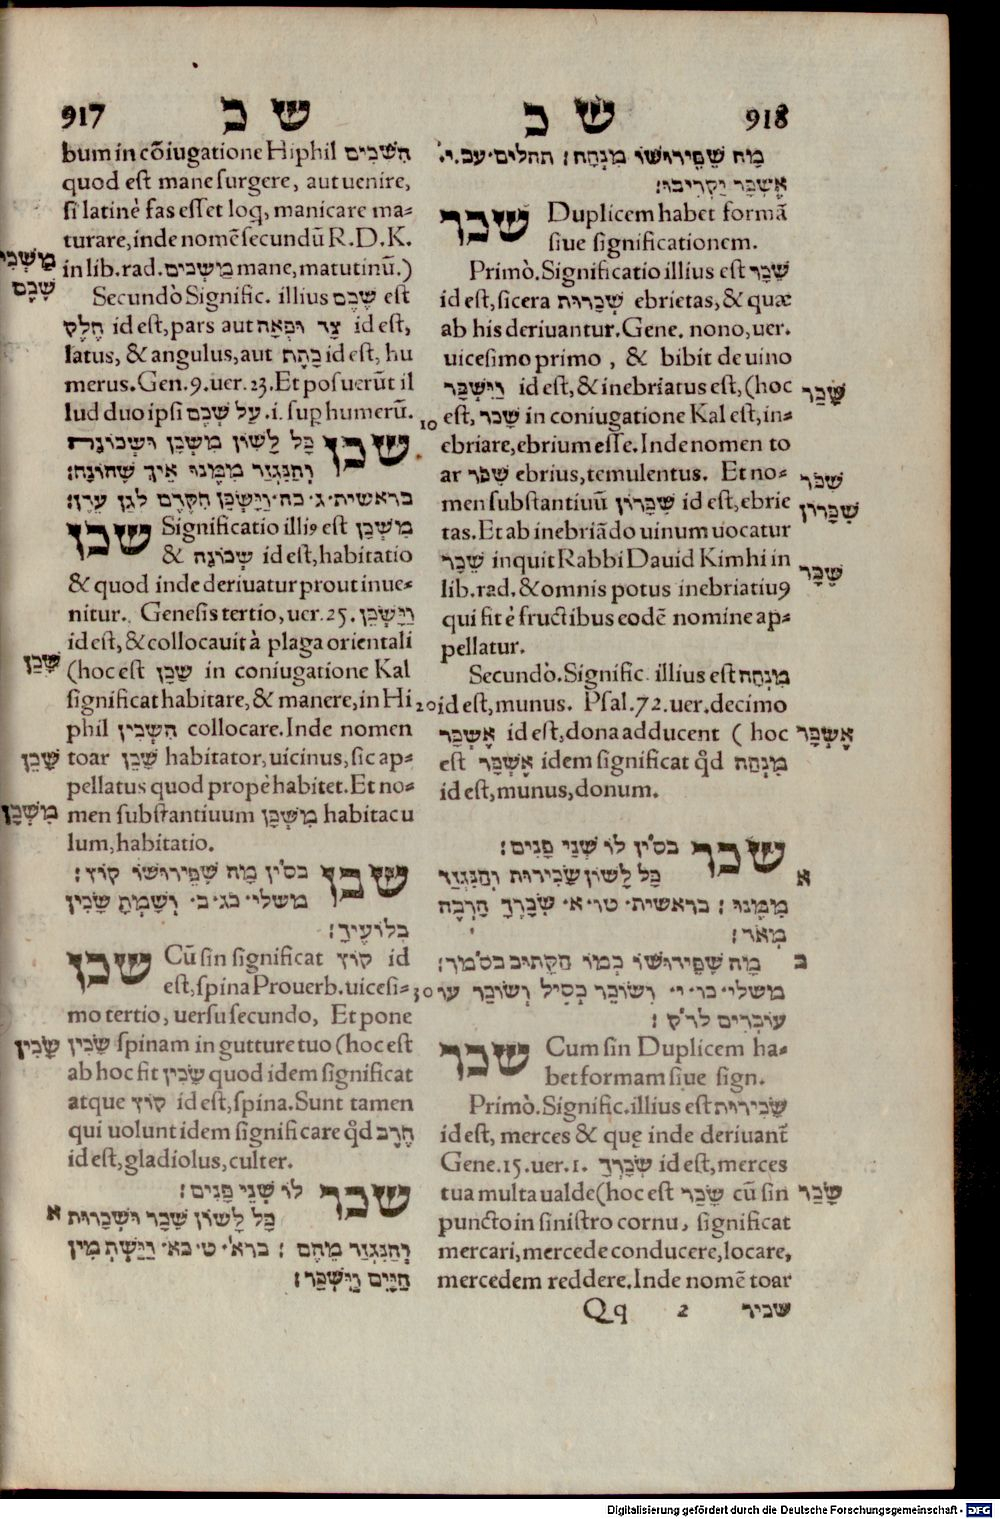 917 ש כ
bum in cõiugatione Hiphil השכים
quod est mane surgere, aut uenire,
si latinè fas esset loq, manicare ma-
turare, inde nomẽ secundũ R.D.K.
in lib. rad. משכים mane, matutinũ.)
Secundò Signific. illius שכם est
חלק id est, pars aut צד ופאה id est,
latus, & angulus, aut כתף id est, hu
merus. Gen. 9. uer. 23. Et posuerũt il
lud duo ipsi על שכם .i. sup humerũ.
שכן כל לשון משכן ושכונה
והנגזר ממנו איך שהונח:
בראשית·ג·כח·וישכן מקדם לגן עדן:
שכן Significatio illi9 est משכן
& שכונה id est, habitatio
& quod inde deriuatur prout inue-
nitur. Genesis tertio, uer. 25. וישכן
id est, & collocauit à plaga orientali
(hoc est שכן in coniugatione Kal
significat habitare, & manere, in Hi
phil השכין collocare. Inde nomen
toar שכן habitator, uicinus, sic ap-
pellatus quod propè habitet. Et no-
men substantiuum משכן habitacu
lum, habitatio.
שכן בס'ין מה שפירושו קוץ:
משלי·כג·ב· ושמת שכין
בלועיך:
שכן Cũ sin significat קוץ id
est, spina Prouerb. uicesi-
mo tertio, uersu secundo, Et pone
שכין spinam in gutture tuo (hoc est
ab hoc fit שכין quod idem significat
atque קוץ id est, spina. Sunt tamen
qui uolunt idem significare qđ חרב
id est, gladiolus, culter.
שכר לו שני פנים:
א כל לשון שכר ושכרות
והנגזר מהם : ברא'·ט·כא·וישת מין
היין וישכר:
משכי
שכם
שכן
שכן
משכן
שכין
10
20
30
ש כ 918
מה שפירושו מנחה: תהלים·עב·י·
אשכר יקריבו:
שכר Duplicem habet formã
siue significationem.
Primò. Significatio illius est שכר
id est, sicera שכרות ebrietas, & quæ
ab his deriuantur. Gene. nono, uer.
uicesimo primo , & bibit de uino
וישכר id est, & inebriatus est, (hoc
est, שכר in coniugatione Kal est, in-
ebriare, ebrium esse. Inde nomen to
ar שכור ebrius, temulentus. Et no-
men substantiuũ שכרון id est, ebrie
tas. Et ab inebriãdo uinum uocatur
שכר inquit Rabbi Dauid Kimhi in
lib. rad. & omnis potus inebriatiu9
qui fit è fructibus eodẽ nomine ap-
pellatur.
Secundò. Signific. illius est מנחה
id est, munus. Psal. 72. uer. decimo
אשכר id est, dona adducent ( hoc
est אשכר idem significat qđ מנחה
id est, munus, donum.
שכר בס'ין לו שני פנים:
א כל לשון שכירות והנגזר
ממנו : בראשית· טו· א· שכרך הרבה
מאד:
ב מה שפירושו כמו הכתוב בס'מך:
משלי· כו· י· ושוכר כסיל ושוכר עו
עוברים לר'ק :
שכר Cum sin Duplicem ha-
bet formam siue sign.
Primò. Signific. illius est שכירות
id est, merces & quę inde deriuanť
Gene. 15. uer. 1. שכרך id est, merces
tua multa ualde (hoc est שכר cũ sin
puncto in sinistro cornu, significat
mercari, mercede conducere, locare,
mercedem reddere. Inde nomẽ toar
שכר
שכור
שכרון
שכר
אשכר
שכר
Qq 2 שכיר
Digitalisierung gefördert durch die Deutsche Forschungsgemeinschaft - DFG